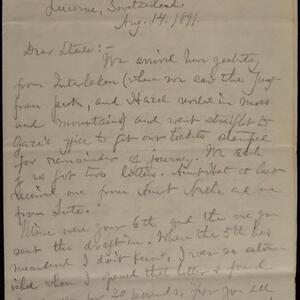 Lucerne, Switzerland,
Aug. 14. 1891.
Dear :-
We arrived here yesterday
from Interlaken (where we saw the Jung-
frau peak, and Hazel in snow
and mountains) and went straight to
Gaze's office to get our tickets stamped
for remainder of journey. We each
of us got two letters. at last
received one from Aunt and one
from
were your 6th and the one you
sent the draft in. Where the 5th has
I don't know. I was so
when I opened that letter & found
for 20 pounds. for you all